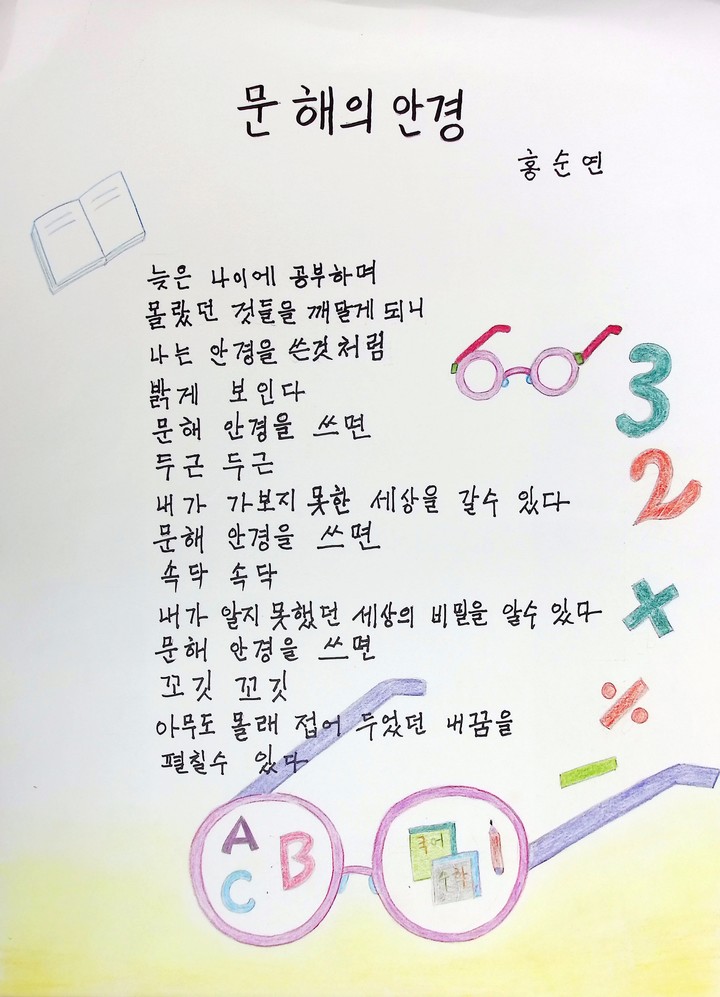 문해의 안경
홍순연
늦은 나이에 공부하며
몰랐던 것들을 깨달게 되니
나는 안경을 쓴것처럼
밝게 보인다
문해 안경을 쓰면
두근 두근
내가 가보지 못한 세상을 갈수 있다
문해 안경을 쓰면
속닥 속닥
내가 알지 못했던 세상의 비밀을 알수 있다
문해 안경을 쓰면
꼬깃 꼬깃
아무도 몰래 접어 두었던 내꿈을
펼칠수 있다
3
2
×
÷
−
A
B
C
국어
수학